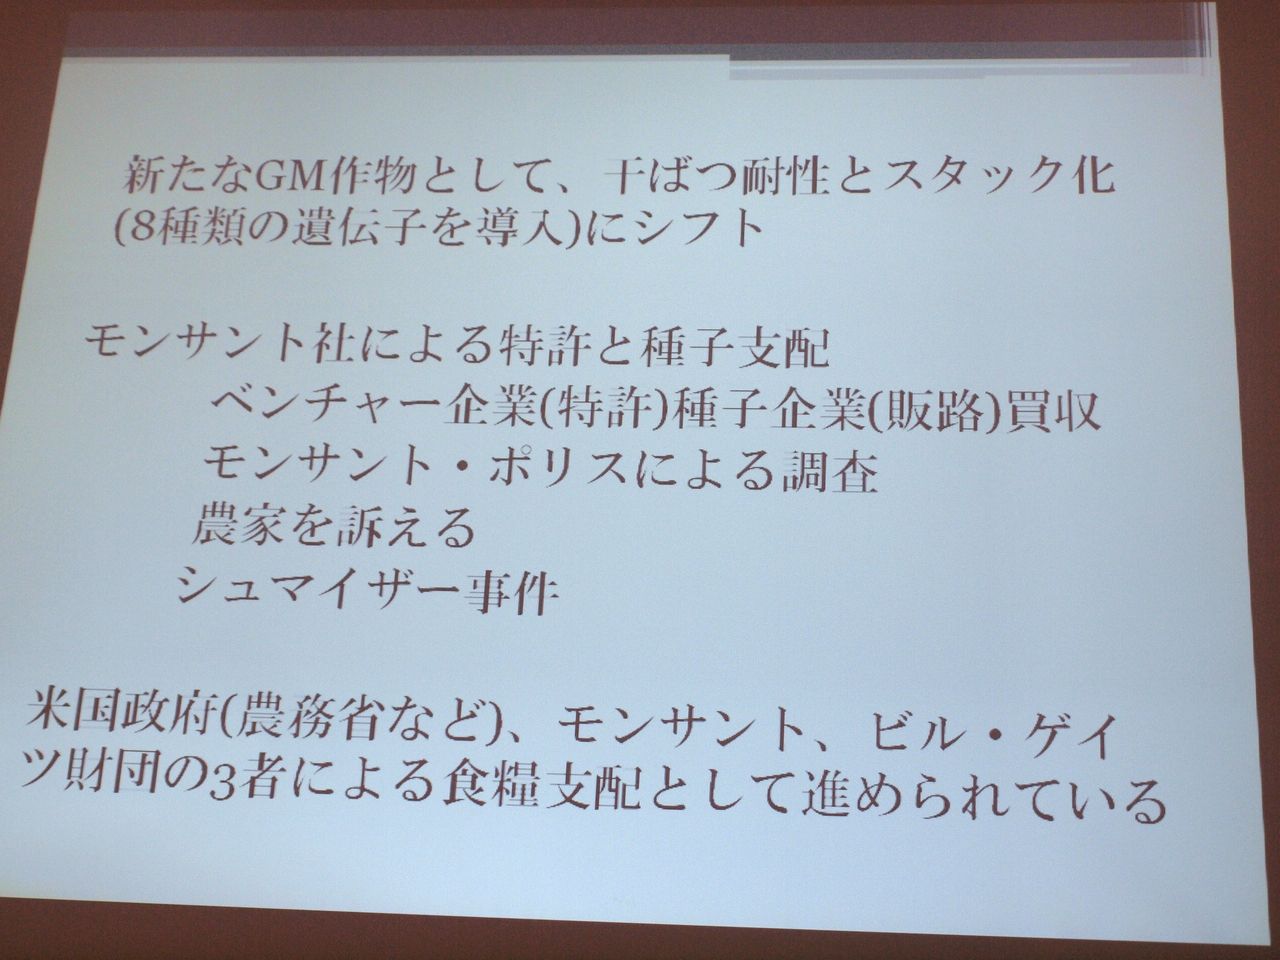 新たなGM作物として、干ばつ耐性とスタック化
(8種類の遺伝子を導入)にシフト
モンサント社による特許と種子支配
ベンチャー企業(特許)種子企業(販路)買収
モンサント・ポリスによる調査
農家を訴える
シュマイザー事件
米国政府(農務省など)、モンサント、ビル・ゲイ
ツ財団の3者による食糧支配として進められている